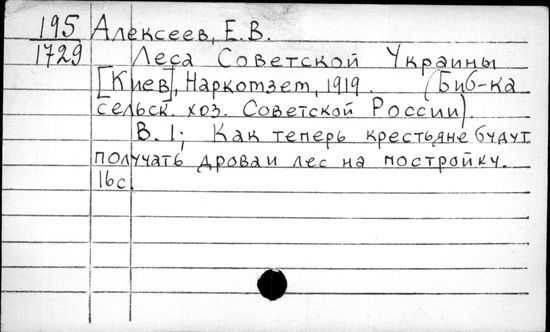 195 Алексеев, Е.В.
1729 Леса Советской Украины
[Киев], Наркомзем, 1919. (Биб-ка
сельск. хоз. Советской России).
В.1; Как теперь крестьяне будут
получать дрова и лес на постройку.
16с.